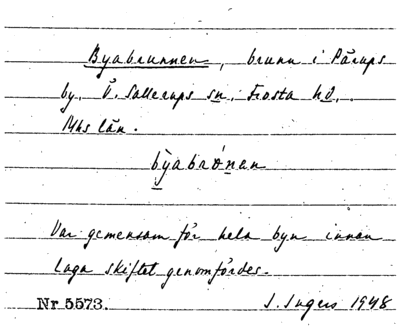 Byabrunnen, brunn i Pårups
by, Ö. Sallerups sn, Frosta hd,
Mhs län.
býabrónen
Var gemensam för hela byn innan
laga skiftet genomfördes.
Nr 5573. I. Ingers 1948